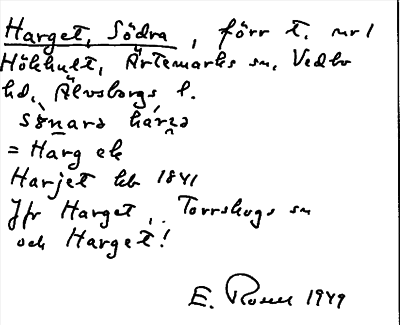 Harget, Södra, förr t. nr 1
Hökhult, Ärtemarks sn, Vedbo
hd, Älvsborgs l.
= Harg ek
Harjet hb 1841
Jfr Harget, Torrskogs sn
och Harget!
E. Rosell 1949